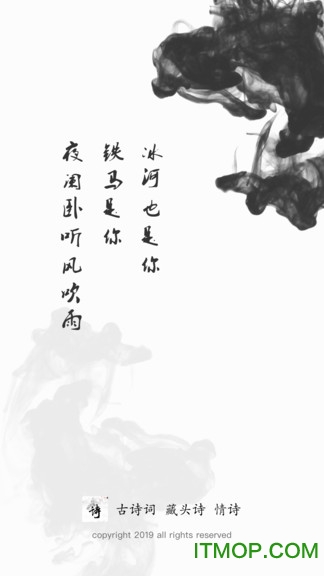 夜阑卧听风吹雨
铁马是你
冰河也是你
诗
古诗词 藏头诗 情诗
copyright 2019 all rights reserved
ITMOP.com